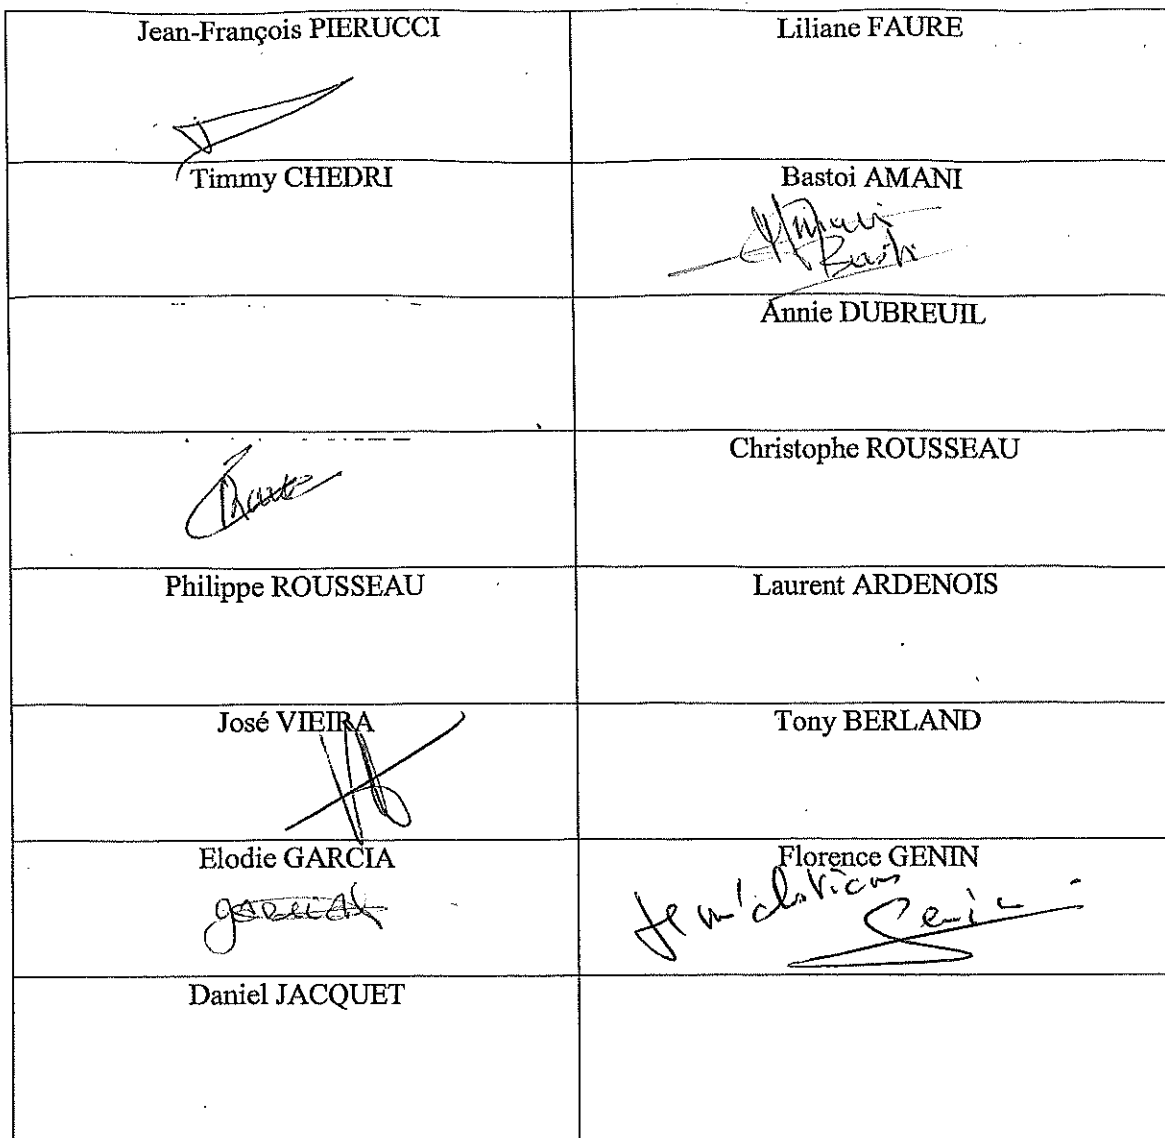 Jean-François PIERUCCI
Liliane FAURE
Timmy CHEDRI
Bastoi AMANI
Amani
Annie DUBREUIL
Christophe ROUSSEAU
Philippe ROUSSEAU
Laurent ARDENOIS
José VIEIRA
Tony BERLAND
Elodie GARCIA
Florence GENIN
Je m'abstiens
Genin
Daniel JACQUET